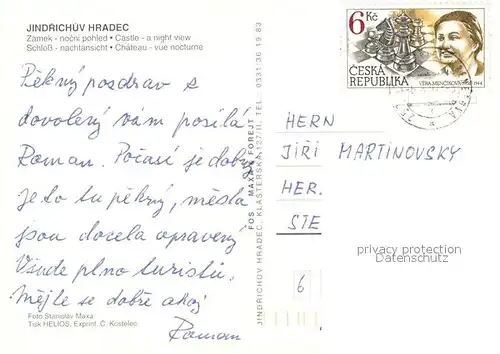 JINDŘICHŮV HRADEC
Zámek - noční pohled • Castle - a night view
Schloß - nachtansicht • Château - vue nocturne
Pěkný pozdrav s
dovolený vám posílá
Roman. Počasí je dobrý
je to tu pěkný, města
jsou docela opravený
Všude plno turistů.
Mějte se dobře ahoj
Roman
Foto Stanislav Maxa
Tisk HELIOS, Exprint, Č. Kostelec
FOS MAXA & FOREJT
JINDŘICHŮV HRADEC, KLÁŠTERSKÁ 127/II, TEL. 0331/36 19 83
6 Kč
ČESKÁ
REPUBLIKA
VĚRA MENČÍKOVÁ
1944
HERN
JIŘI MARTINOVSKY
HER.
STE
privacy protection
Datenschutz
6